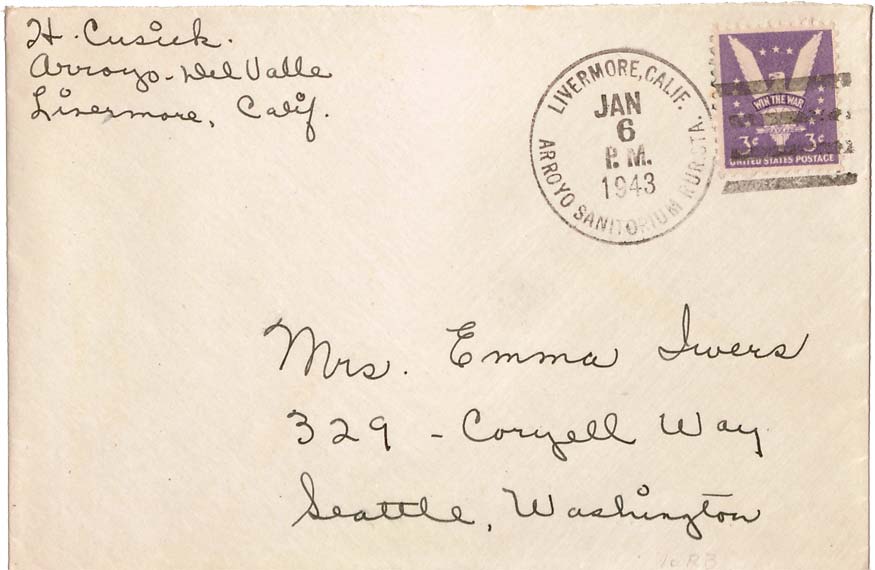 H. Cusick.
Arroyo-Del Valle
Livermore, Calif.
LIVERMORE, CALIF.
JAN
6
P.M.
1943
ARROYO SANITORIUM RUR. STA.
WIN THE WAR
3¢ 3¢
UNITED STATES POSTAGE
Mrs. Emma Iwers
329 - Coryell Way
Seattle, Washington